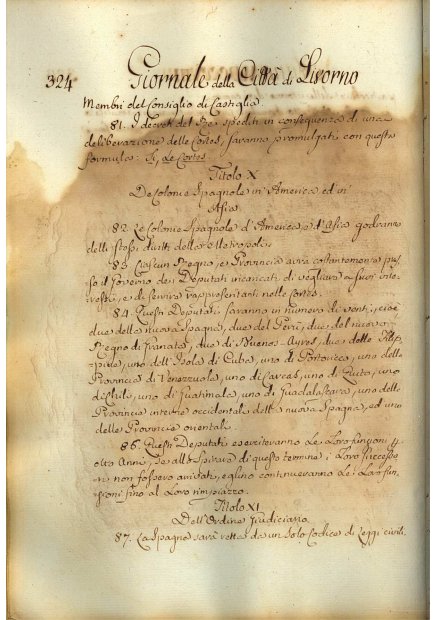 324 Giornale della Città di Livorno
Membri del Consiglio di Castiglia.
81. I decreti del Re spediti in conseguenza di una
deliberazione delle Cortes, saranno promulgati con questa
formula: Il, Le Cortes
Titolo X
De Colonie Spagnole in America ed in
Asia
82. Le Colonie Spagnole d'America, e d'Asia godranno
delli stessi diritti della Metropoli.
83. Ciascun Regno, e Provincia avrà costantemente
il Governo dei Deputati incaricati di vegliare a suoi inte
ressi, e di servire rappresentanti nelle Cortes.
84. Questi Deputati saranno in numero di venti, cioè
due della nuova Spagna, due del Perù, due del nuovo
Regno di Granata, due di Buenos-Ayres, due delle Filip
pine, uno dell'Isola di Cuba, uno di Portoricco, uno della
Provincia di Venezzuola, uno di Carcas, uno di Quito, uno
di Chili, uno di Guatimala, uno di Guadalaxara, uno delle
Provincie interne occidentali della nuova Spagna, ed uno
delle Provincie orientali.
85. Questi Deputati eserciteranno le loro funzioni p
otto Anni, Se allo spirare di questo termine i loro successo
ri non fossero arrivati, eglino continueranno le loro fun
zioni fino al loro rimpiazzo.
Titolo XI
Dell'Ordine Giudiciario
87. La Spagna sarà retta da un solo Codice di Leggi civili